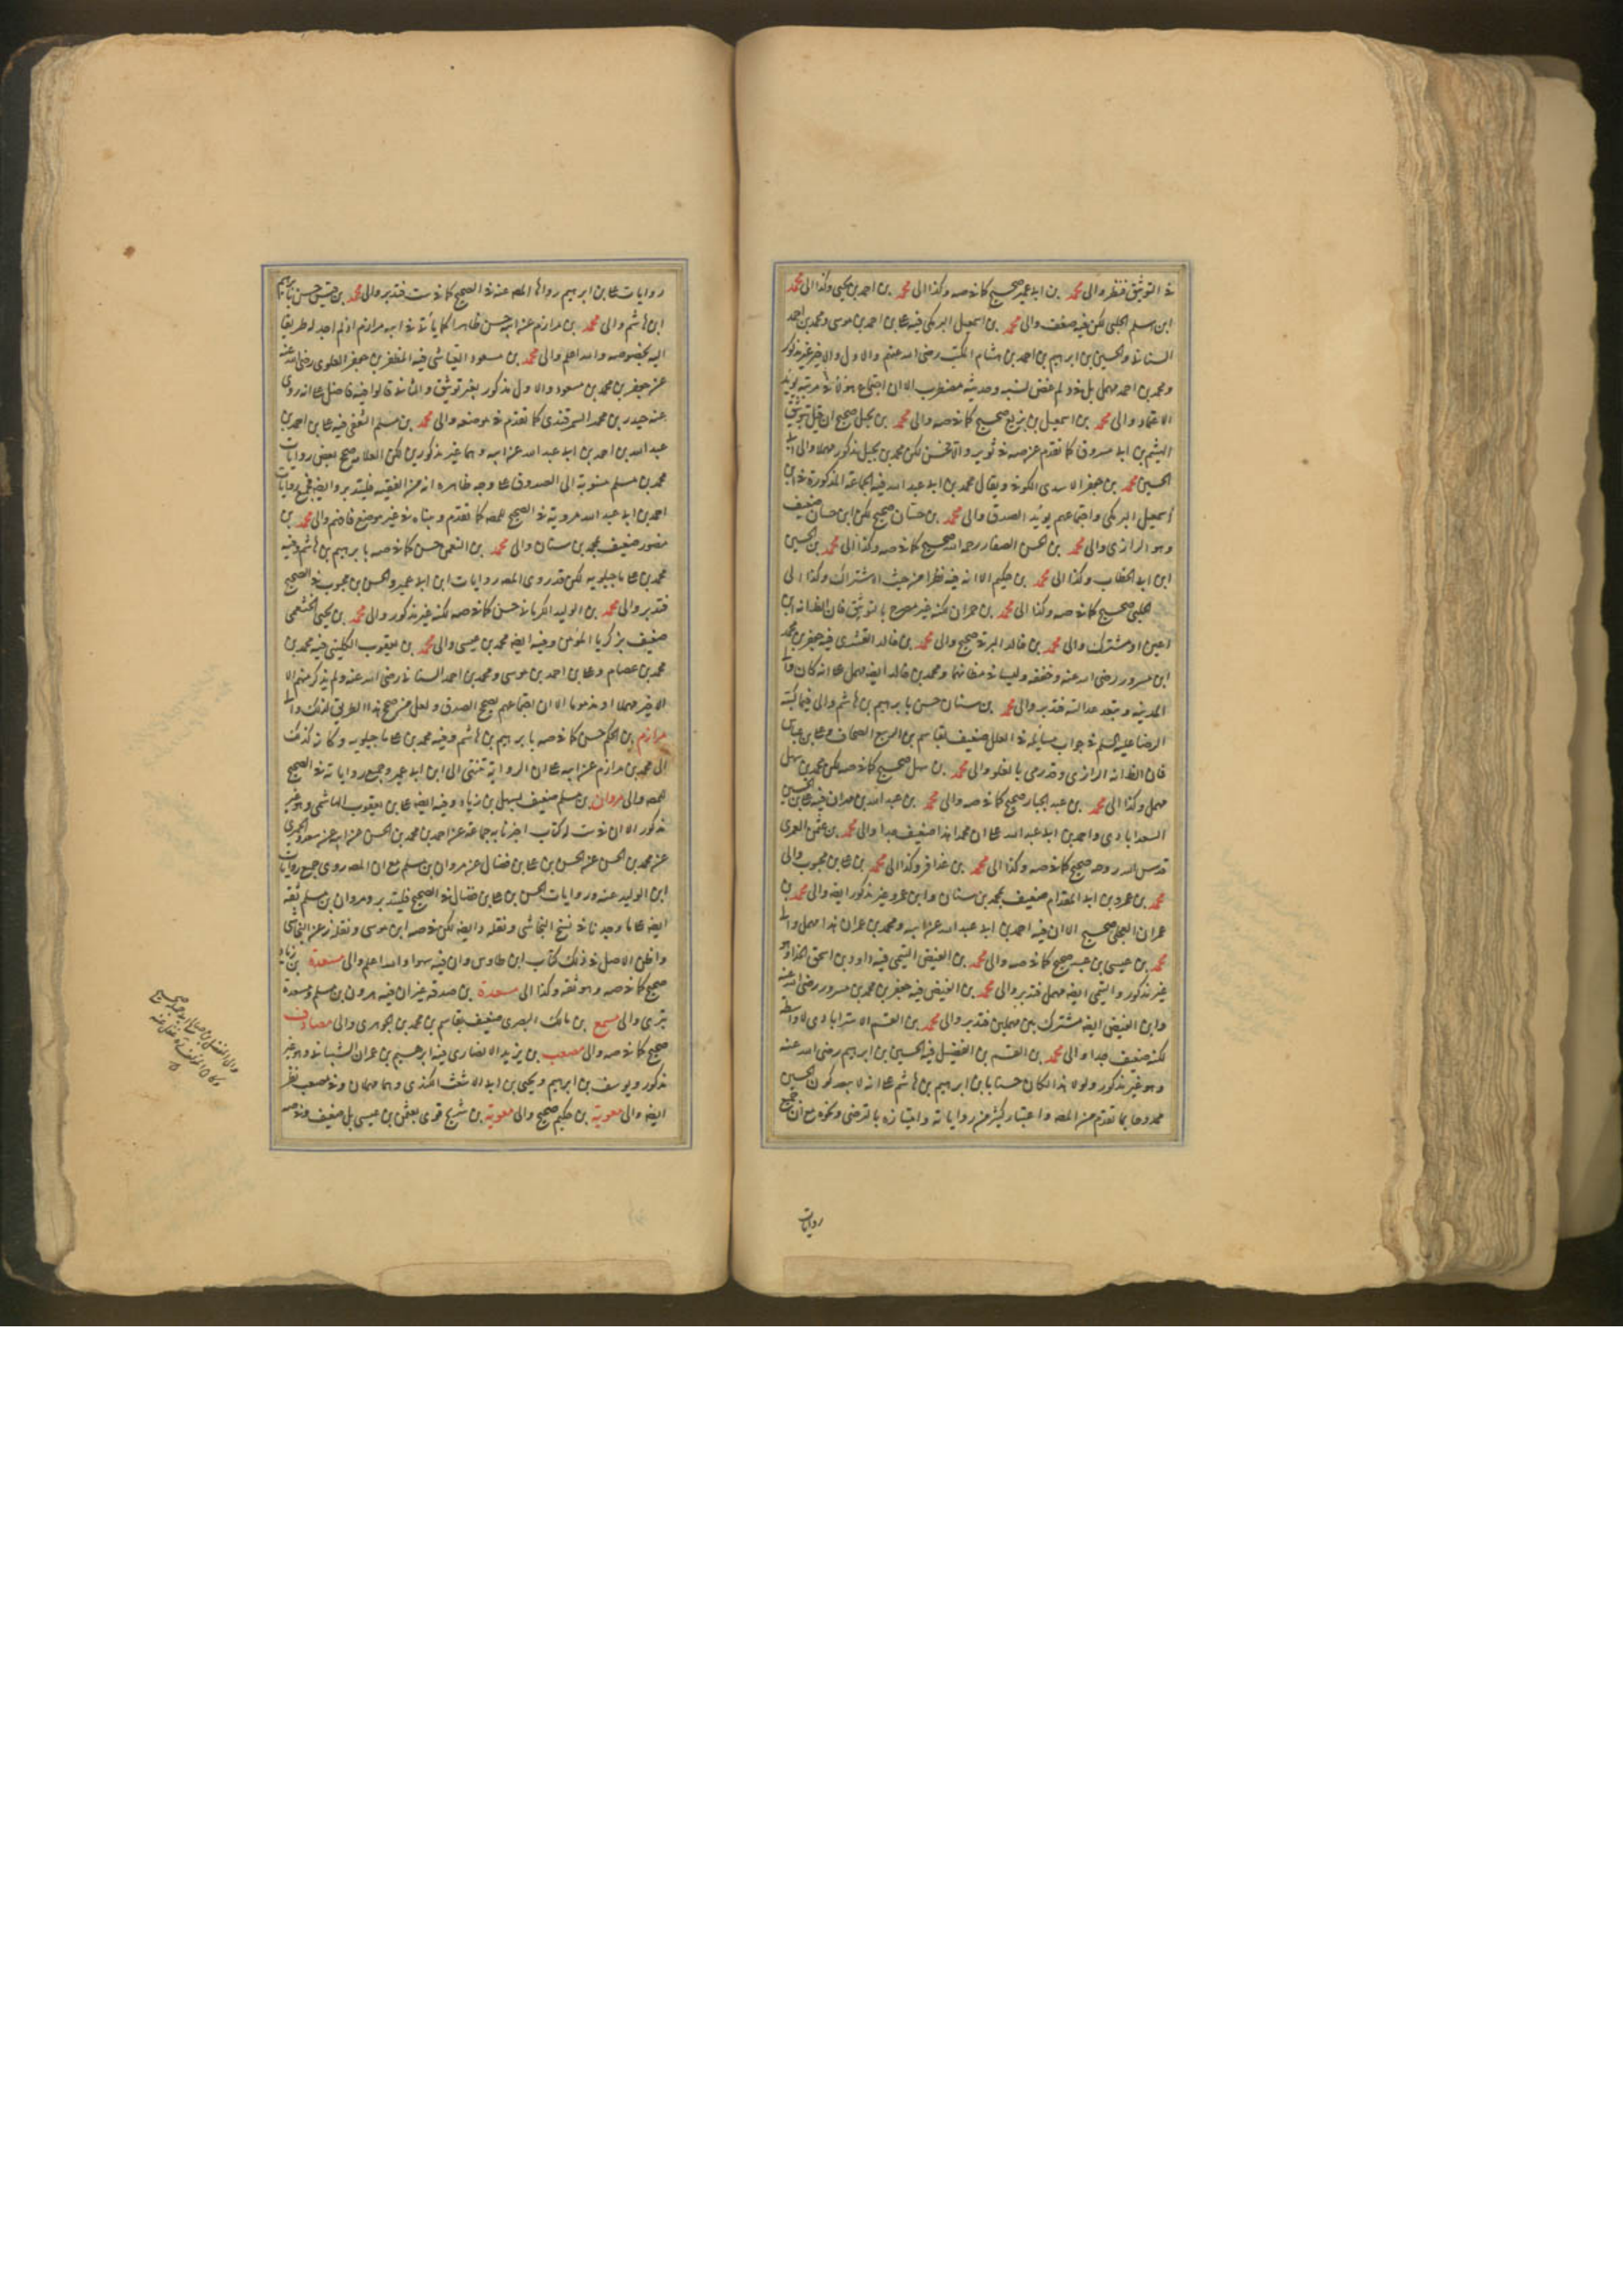 في التوثيق فنظر والى محمد بن ابى عمير صحيح كما في صه وكذا الى محمد بن احمد بن يحيى وكذا الى محمد
ابن اسلم الجبلي لكن فيه ضعف والى محمد بن اسمعيل البرمكي فيه علي بن احمد بن موسى ومحمد بن احمد
السناني والحسين بن ابرهيم بن احمد بن هشام المكتب رضى الله عنهم والاول والاخير غير مذكور
ومحمد بن احمد مهمل بل في د لم نسبه وحديثه مضطرب الا ان اجتماع هؤلاء
الاعتماد والى محمد بن اسمعيل بن بزيع صحيح كما في صه والى محمد بن بجيل صحيح ان قيل بتوثيق
الهيثم بن ابى مسروق كما تقدم عن صه في ثوير والا فحسن لكن محمد بن بجيل مذكور مهملا والى ابى
الحسين محمد بن جعفر الاسدى الكوفي ويقال محمد بن ابى عبد الله فيه الجماعة المذكورة في ابن
اسمعيل البرمكي واجتماعهم يؤيد الصدق والى محمد بن حسان صحيح لكن ابن حسان ضعيف
وهو الرازى والى محمد بن الحسن الصفار رحمه الله صحيح كما في صه وكذا الى محمد بن الحسين
ابن ابى الخطاب وكذا الى محمد بن حكيم الا انه فيه نظرا من حيث الاشتراك وكذا الى
الحلبي صحيح كما في صه وكذا الى محمد بن حمران لكنه غير مصرح بالتوثيق فان الظ انه ابن
اعين او مشترك والى محمد بن خالد البرقي صحيح والى محمد بن خالد القسرى فيه جعفر بن محمد
ابن مسرور رضى الله عنه وحفقه وليسا في مظانهما ومحمد بن خالد ايضه مهمل على انه كان والى
المدينة ويبعد عدالته فتدبر والى محمد بن سنان حسن بابرهيم بن هاشم والى فيما كتبه
الرضا عليه السلم في جواب مسايله في العلل ضعيف بقاسم بن الربيع الصحاف وعلي بن عباس
فان الظ انه الرازى وقد رمى بالغلو والى محمد بن سهل صحيح كما في صه لكن محمد بن سهل
مهمل وكذا الى محمد بن عبد الجبار صحيح كما في صه والى محمد بن عبد الله بن مهران فيه علي بن الحسين
السعدابادى واحمد بن ابى عبد الله على ان محمدا هذا ضعيف جدا والى محمد بن عثمن العمرى
قدس الله روحه صحيح كما في صه وكذا الى محمد بن عذافر وكذا الى محمد بن علي بن محبوب والى
محمد بن عمرو بن ابى المقدام ضعيف بمحمد بن سنان وابن عمرو غير مذكور ايضه والى محمد بن
عمران العجلي صحيح الا ان فيه احمد بن ابى عبد الله عن ابيه ومحمد بن عمران هذا مهمل والى
محمد بن عيسى بن عبيد صحيح كما في صه والى محمد بن الفيض التيمي فيه داود بن اسحق الحذاء وهو
غير مذكور والتيمي ايضه مهمل فتدبر والى محمد بن الفيض فيه جعفر بن محمد بن مسرور رضى الله عنه
وابن الفيض ايضه مشترك بين مهملين فتدبر والى محمد بن القسم الاسترابادى لا واسطة
لكنه ضعيف جدا والى محمد بن القسم بن الفضيل فيه الحسين بن ابرهيم رضى الله عنه
وهو غير مذكور ولولا هذا لكان حسنا بابن ابرهيم بن هاشم على انه لا يبعد كون الحسين
ممدوحا بما تقدم من المصه واعتبار كثير من رواياته وامتيازه بالترضى ونحوه مع ان جميع
روايات
روايات علي بن ابرهيم رواها المصه عنه في الصحيح كما في ست فتدبر والى محمد بن قيس حسن بابرهيم
ابن هاشم والى محمد بن مرازم عن ابيه حسن ظاهرا كما يأتى في ابيه مرازم اذ لم اجد له طريقا
اليه بخصوصه والله اعلم والى محمد بن مسعود العياشى فيه المظفر بن جعفر العلوى رضى الله عنه
عن جعفر بن محمد بن مسعود والاول مذكور بغير توثيق والثانى قالوا فيه فاضل على انه روى
عنه حيدر بن محمد السمرقندى كما تقدم في موضعه والى محمد بن مسلم الثقفى فيه علي بن احمد بن
عبد الله بن احمد بن ابى عبد الله عن ابيه وهما غير مذكورين لكن العلامة صحح بعض روايات
محمد بن مسلم منسوبة الى الصدوق على وجه ظاهره انه من الفقيه فليتدبر وايضه فجميع روايات
احمد بن ابى عبد الله مروية في الصحيح للمصه كما تقدم وبيناه في غير موضع فافهم والى محمد بن
منصور ضعيف بمحمد بن سنان والى محمد بن النعمى حسن كما في صه بابرهيم بن هاشم وفيه
محمد بن علي ماجيلويه لكن قد روى المصه روايات ابن ابى عمير والحسن بن محبوب في الصحيح
فتدبر والى محمد بن الوليد الكرمانى حسن كما في صه لكنه غير مذكور والى محمد بن يحيى الخثعمى
ضعيف بزكريا المؤمن وفيه ايضه محمد بن عيسى والى محمد بن يعقوب الكلينى فيه محمد بن
محمد بن عصام وعلي بن احمد بن موسى ومحمد بن احمد السنانى رضى الله عنه ولم يذكر منهم الا
الاخير مهملا او مذموما الا ان اجتماعهم يصحح الصدق ولعل من صحح هذا الطريق لذلك والى
مرازم بن الحكم حسن كما في صه بابرهيم بن هاشم وفيه محمد بن علي ماجيلويه وكان كذلك
الى محمد بن مرازم عن ابيه على ان الرواية تنتهى الى ابن ابى عمير وجميع رواياته في الصحيح
للمصه والى مروان بن مسلم ضعيف بسهل بن زياد وفيه ايضه علي بن يعقوب الهاشمى وهو غير
مذكور الا ان في ست له كتاب اخبرنا به جماعة عن احمد بن محمد بن الحسن عن ابيه عن سعد والحميرى
عن محمد بن الحسن عن الحسن بن علي بن فضال عن مروان بن مسلم مع ان المصه روى جميع روايات
ابن الوليد عنه وروايات الحسن بن علي بن فضال في الصحيح فليتدبر ومروان بن مسلم ثقة
ايضه على ما وجدنا في نسخ النجاشى ونقله د ايضه لكن في صه ابن موسى ونقله عن النجاشى
واظن الاصل في ذلك كتاب ابن طاوس وان فيه سهوا والله اعلم والى مسعدة بن زياد
صحيح كما في صه وهو ثقة وكذا الى مسعدة بن صدقة غير ان فيه هرون بن مسلم ومسعدة
بترى والى مسمع بن مالك البصرى ضعيف بقاسم بن محمد بن الجوهرى والى مصادف
صحيح كما في صه والى مصعب بن يزيد الانصارى فيه ابرهيم بن عمران الشيبانى وهو غير
مذكور ويوسف بن ابرهيم ويحيى بن ابى الاشعث الكندى وهما مهملان وفي مصعب نظر
ايضه والى معوية بن حكيم صحيح والى معوية بن شريح قوى بعثمن بن عيسى بل ضعيف وفي صه